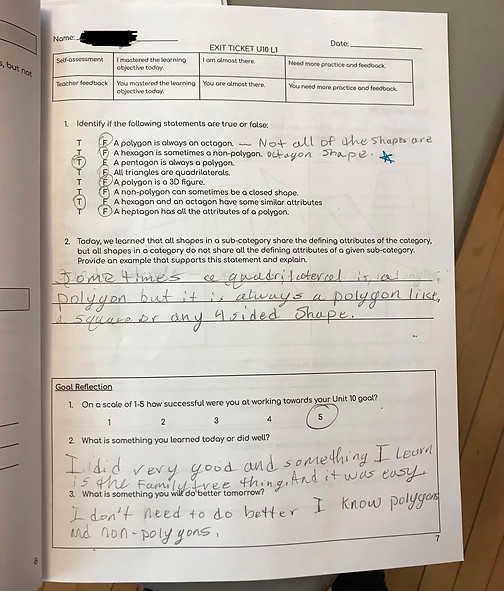 s, but not
Name:
Date:
EXIT TICKET U10 L1
Self-assessment I mastered the learning objective today. I am almost there. Need more practice and feedback.
Teacher feedback You mastered the learning objective today. You are almost there. You need more practice and feedback.
1. Identify if the following statements are true or false:
T F A polygon is always an octagon. — Not all of the shapes are
T F A hexagon is sometimes a non-polygon. octagon shape.
T F A pentagon is always a polygon.
T F All triangles are quadrilaterals.
T F A polygon is a 3D figure.
T F A non-polygon can sometimes be a closed shape.
T F A hexagon and an octagon have some similar attributes
T F A heptagon has all the attributes of a polygon.
2. Today, we learned that all shapes in a sub-category share the defining attributes of the category,
but all shapes in a category do not share all the defining attributes of a given sub-category.
Provide an example that supports this statement and explain.
Sometimes a quadrilateral is a
polygon but it is always a polygon like,
a square or any 4 sided shape.
Goal Reflection
1. On a scale of 1-5 how successful were you at working towards your Unit 10 goal?
1 2 3 4 5
2. What is something you learned today or did well?
I did very good and something I learn
is the family tree thing. And it was easy.
3. What is something you will do better tomorrow?
I don't need to do better I know polygons
and non-polygons.
6
7